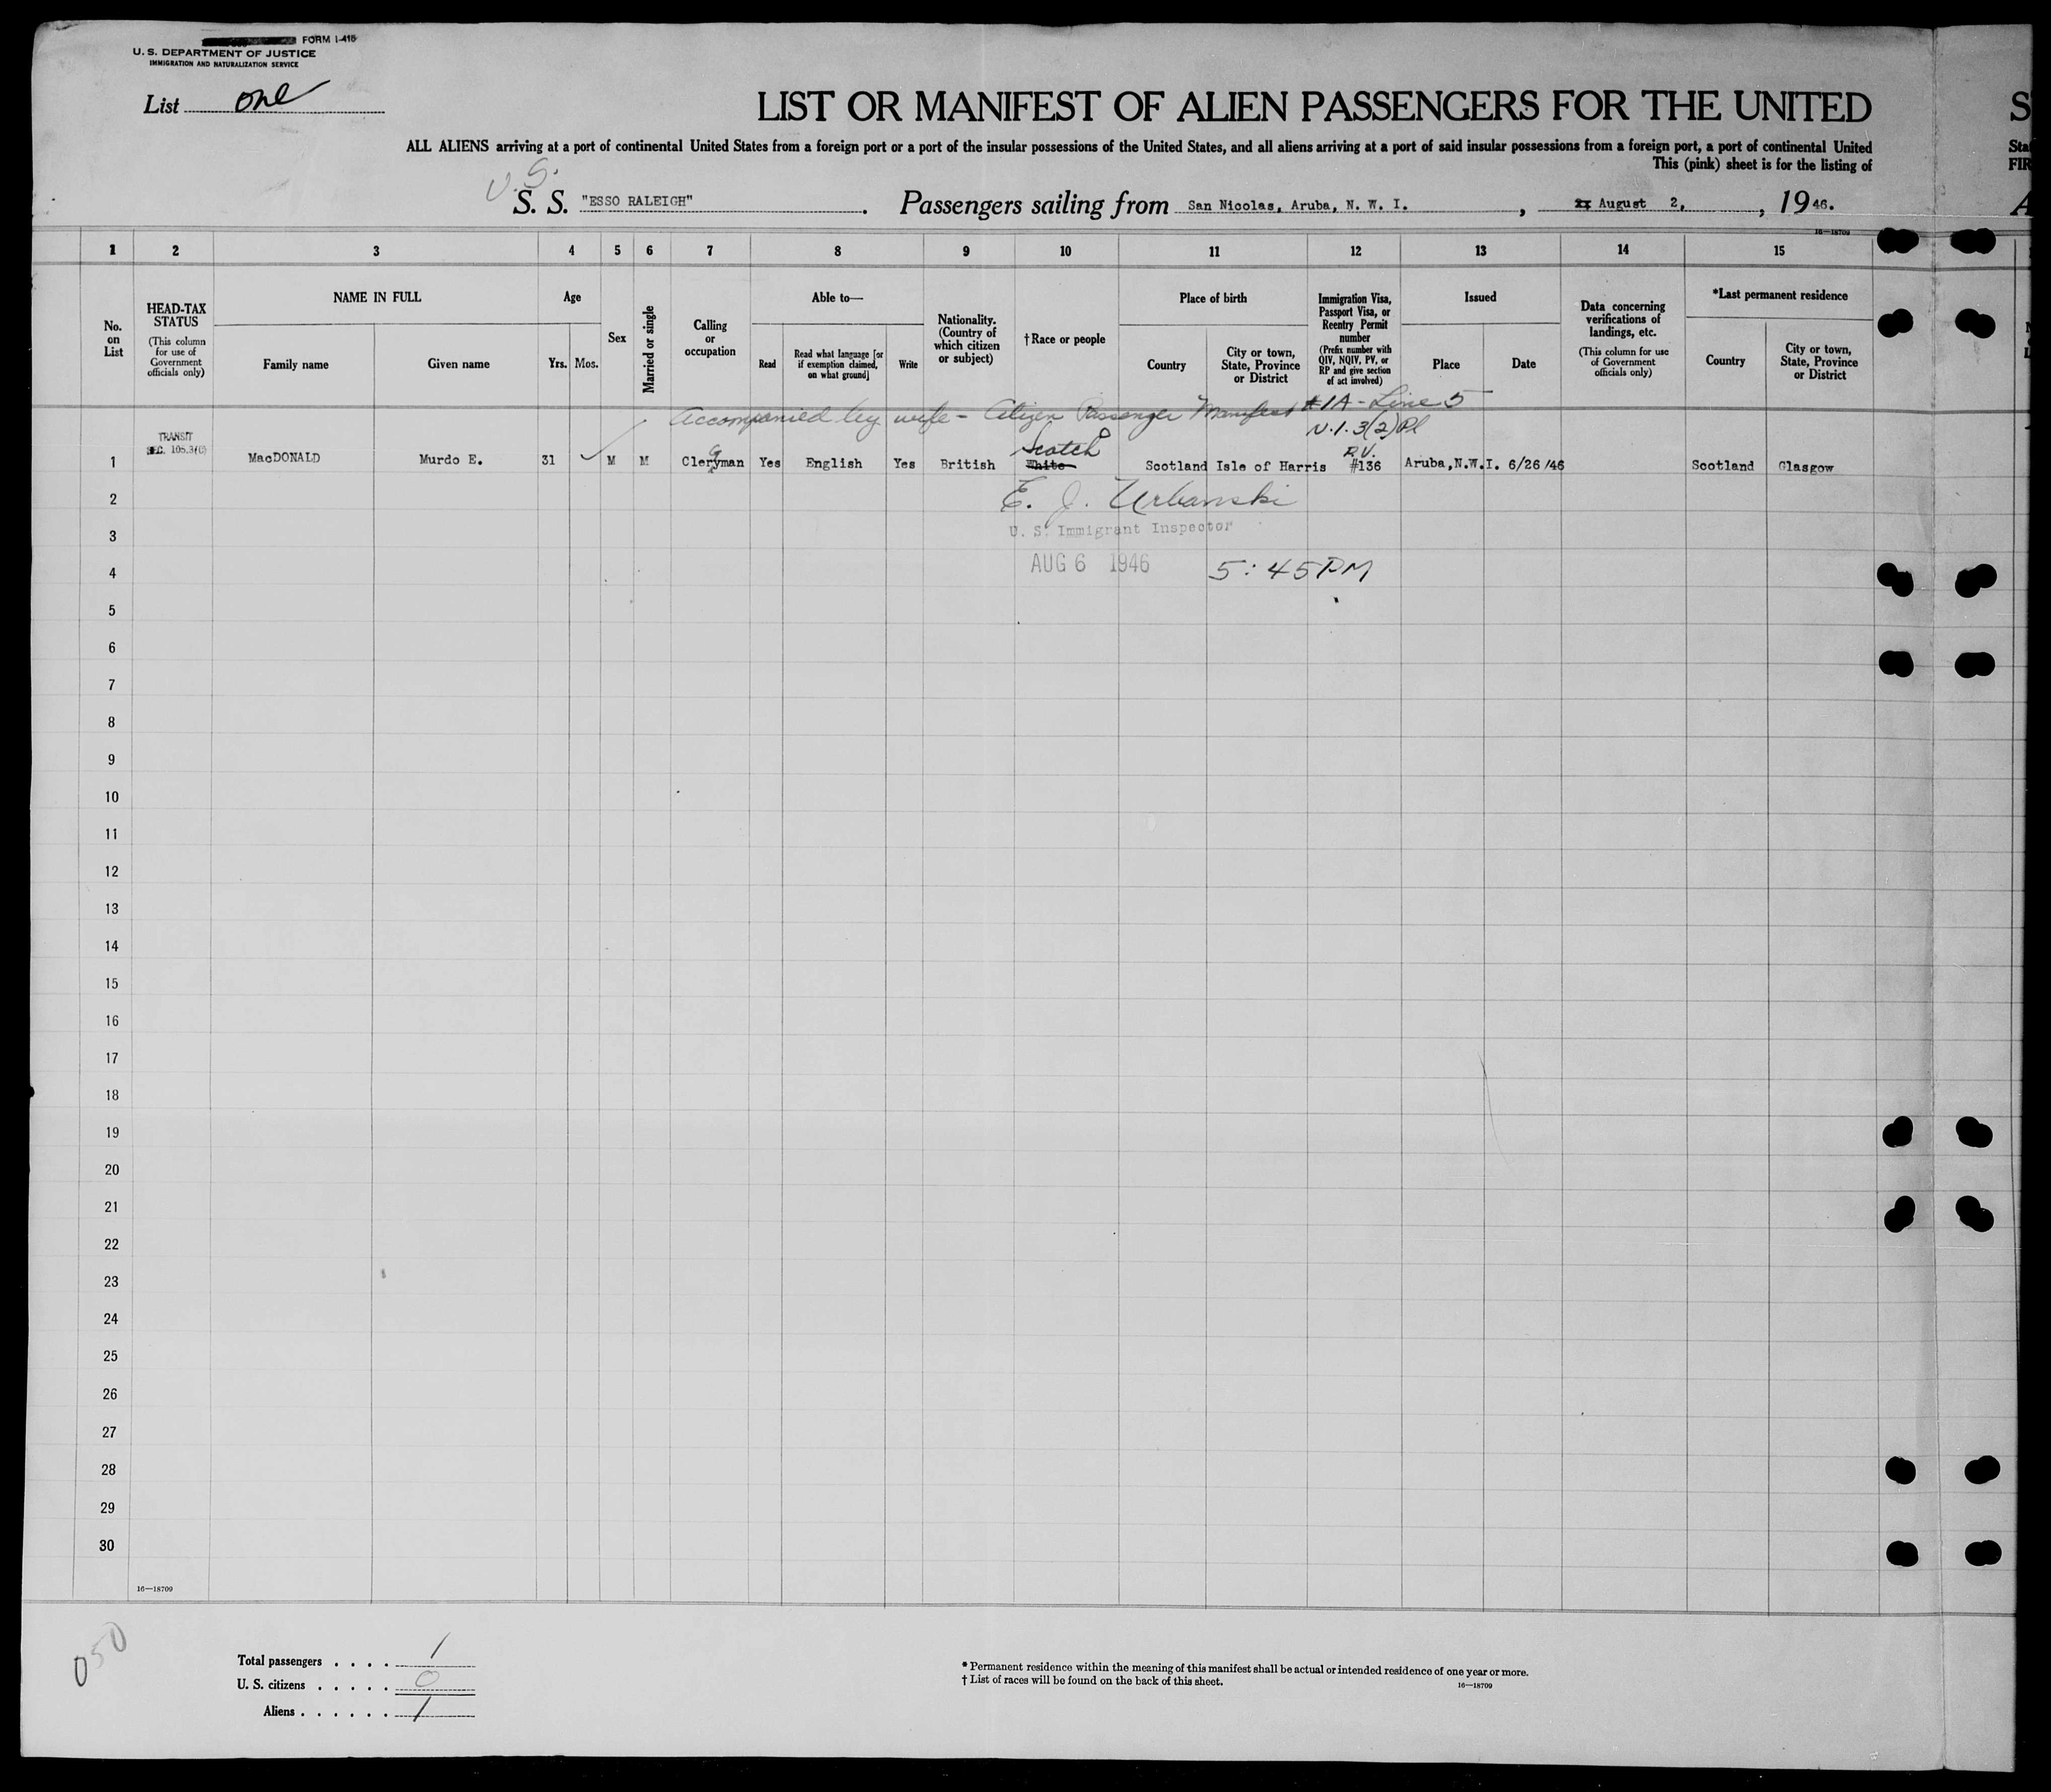 FORM I-415
U. S. DEPARTMENT OF JUSTICE
IMMIGRATION AND NATURALIZATION SERVICE
List one
LIST OR MANIFEST OF ALIEN PASSENGERS FOR THE UNITED
S
ALL ALIENS arriving at a port of continental United States from a foreign port or a port of the insular possessions of the United States, and all aliens arriving at a port of said insular possessions from a foreign port, a port of continental United
Sta
This (pink) sheet is for the listing of
FIR
U.S.
S. S. "ESSO RALEIGH". Passengers sailing from San Nicolas, Aruba, N. W. I., August 2, , 1946.
A
16—18709
1 2 3 4 5 6 7 8 9 10 11 12 13 14 15
No. on List
HEAD-TAX STATUS
(This column for use of Government officials only)
NAME IN FULL
Family name
Given name
Age
Yrs. Mos.
Sex
Married or single
Calling or occupation
Able to—
Read
Read what language [or if exemption claimed, on what ground]
Write
Nationality. (Country of which citizen or subject)
†Race or people
Place of birth
Country
City or town, State, Province or District
Immigration Visa, Passport Visa, or Reentry Permit number
(Prefix number with QIV, NQIV, PV, or RP and give section of act involved)
Issued
Place
Date
Data concerning verifications of landings, etc.
(This column for use of Government officials only)
*Last permanent residence
Country
City or town, State, Province or District
Accompanied by wife - Citizen Passenger Manifest #1A - Line 5
TRANSIT
SEC. 105.3(C)
Scotch
P.V.
1 MacDONALD Murdo E. 31 M M Clergyman Yes English Yes British White Scotland Isle of Harris #136 Aruba,N.W.I. 6/26/46 Scotland Glasgow
2
E. J. Urbanski
3
U. S. Immigrant Inspector
4
AUG 6 1946 5:45 PM
5
6
7
8
9
10
11
12
13
14
15
16
17
18
19
20
21
22
23
24
25
26
27
28
29
30
16—18709
050
Total passengers . . . . 1
U. S. citizens . . . . . 0
Aliens . . . . . . 1
* Permanent residence within the meaning of this manifest shall be actual or intended residence of one year or more.
† List of races will be found on the back of this sheet.
16—18709